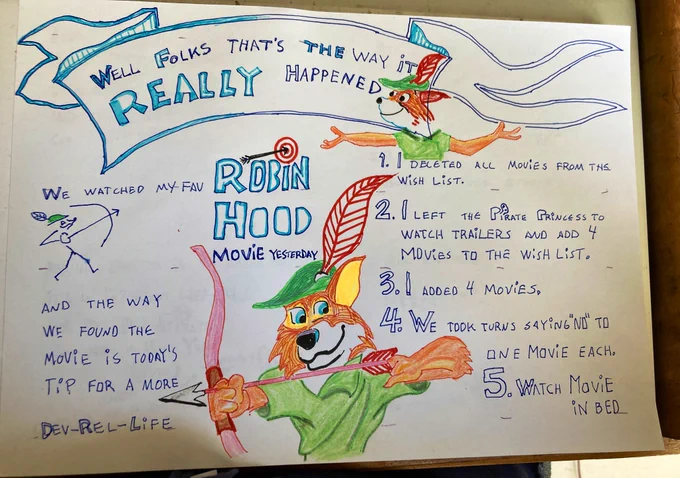 WELL FOLKS THAT'S THE WAY iT
REALLY HAPPENED
WE WATCHED MY FAV
ROBIN
HOOD
MOViE YESTERDAY
AND THE WAY
WE FOUND THE
MOViE iS TODAY'S
TiP FOR A MORE
DEV-REL-LiFE
1. I DELETED ALL MOViES FROM THE
WiSH LiST.
2. I LEFT THE PiRATE PRiNCESS TO
WATCH TRAiLERS AND ADD 4
MOViES TO THE WiSH LiST.
3. I ADDED 4 MOViES.
4. WE TOOK TURNS SAYiNG "NO" TO
ONE MOViE EACH.
5. WATCH MOViE
iN BED